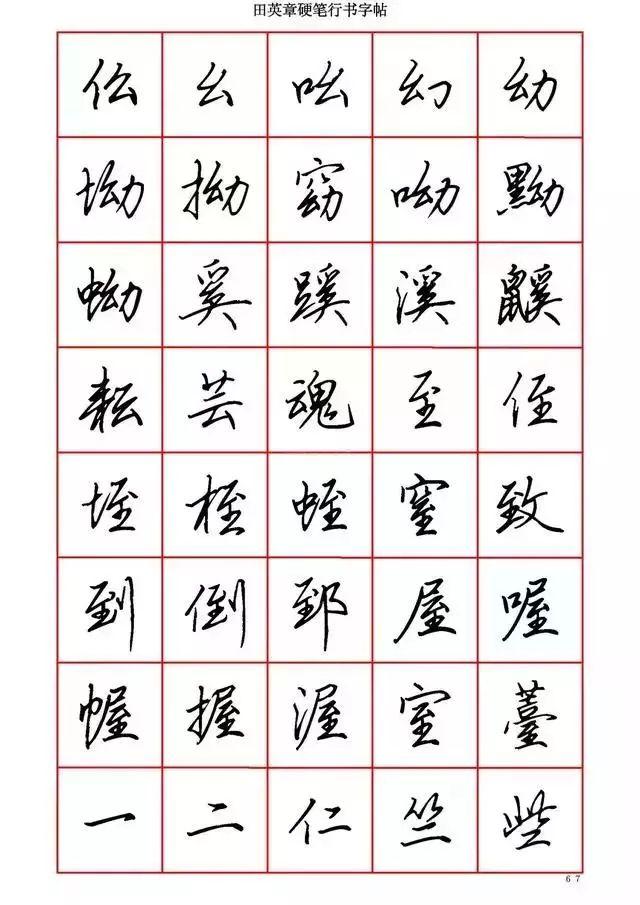 田英章硬笔行书字帖
仫 幺 吆 幻 幼
坳 拗 窈 呦 黝
蚴 奚 蹊 溪 鼷
耘 芸 魂 至 侄
垤 桎 蛭 窒 致
到 倒 郅 屋 喔
幄 握 渥 室 薹
一 二 仁 竺 些
67